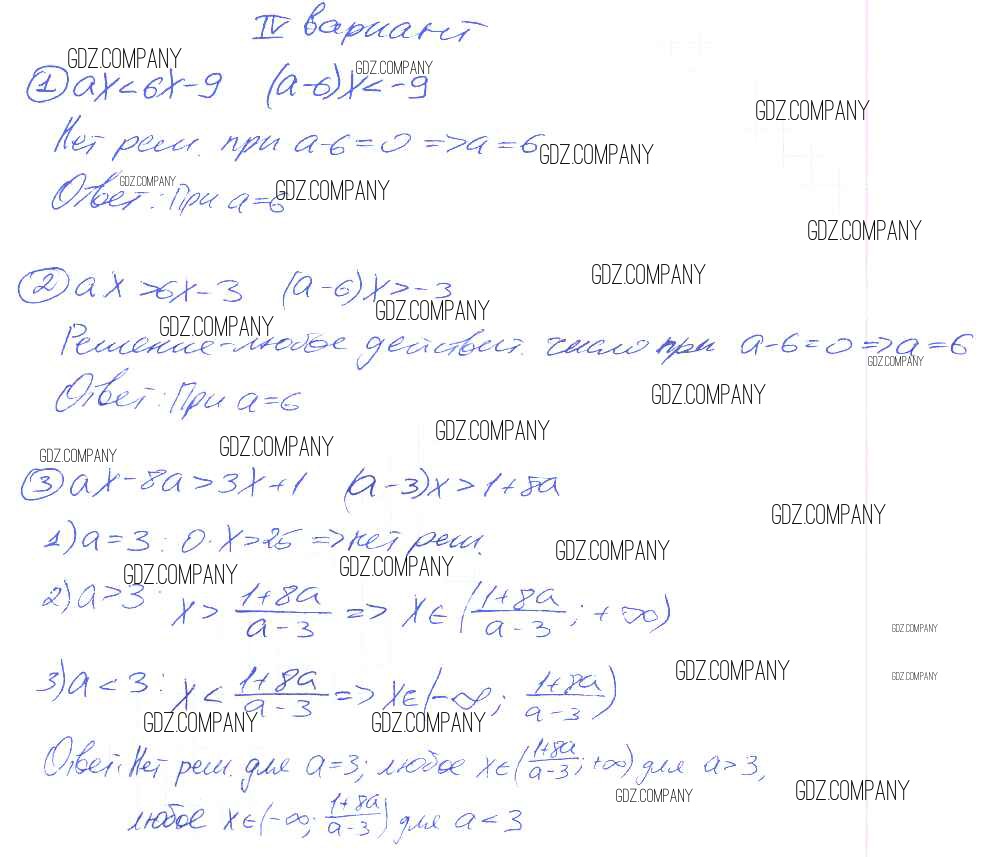 IV вариант
GDZ.COMPANY GDZ.COMPANY
① ax<6x-9 (a-6)x<-9
GDZ.COMPANY
Нет реш. при a-6=0 => a=6 GDZ.COMPANY
GDZ.COMPANY GDZ.COMPANY
Ответ: При a=6
GDZ.COMPANY
GDZ.COMPANY
② ax>6x-3 (a-6)x>-3
GDZ.COMPANY GDZ.COMPANY
Решение-любое действит. число при a-6=0 => a=6
GDZ.COMPANY
Ответ: При a=6 GDZ.COMPANY
GDZ.COMPANY GDZ.COMPANY GDZ.COMPANY
③ ax-8a>3x+1 (a-3)x>1+8a
GDZ.COMPANY
1) a=3: 0·x>25 => нет реш. GDZ.COMPANY
GDZ.COMPANY GDZ.COMPANY
2) a>3: x> (1+8a)/(a-3) => x∈((1+8a)/(a-3); +∞)
GDZ.COMPANY
GDZ.COMPANY GDZ.COMPANY
3) a<3: x< (1+8a)/(a-3) => x∈(-∞; (1+8a)/(a-3))
GDZ.COMPANY GDZ.COMPANY
Ответ: Нет реш. для a=3; любое x∈((1+8a)/(a-3); +∞) для a>3,
GDZ.COMPANY GDZ.COMPANY
любое x∈(-∞; (1+8a)/(a-3)) для a<3